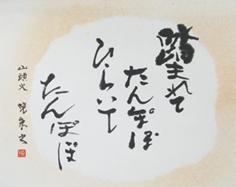 踏まれて
たんぽぽ
ひらいて
たんぽぽ
山頭火